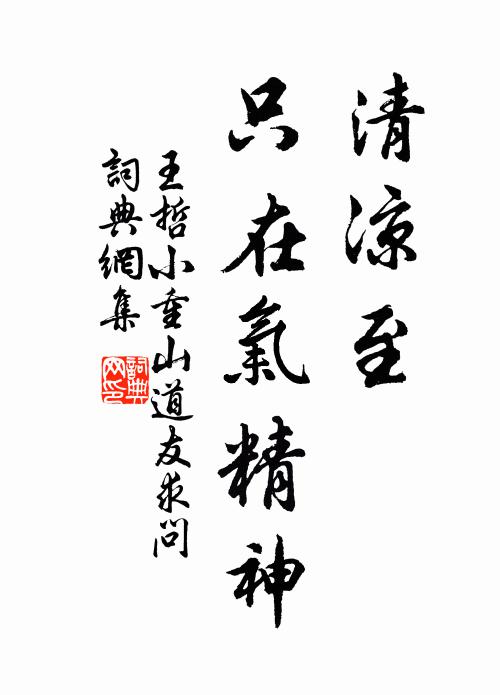 清涼至
只在氣精神
王哲小重山道友求問
詞典網集
詞典
网印